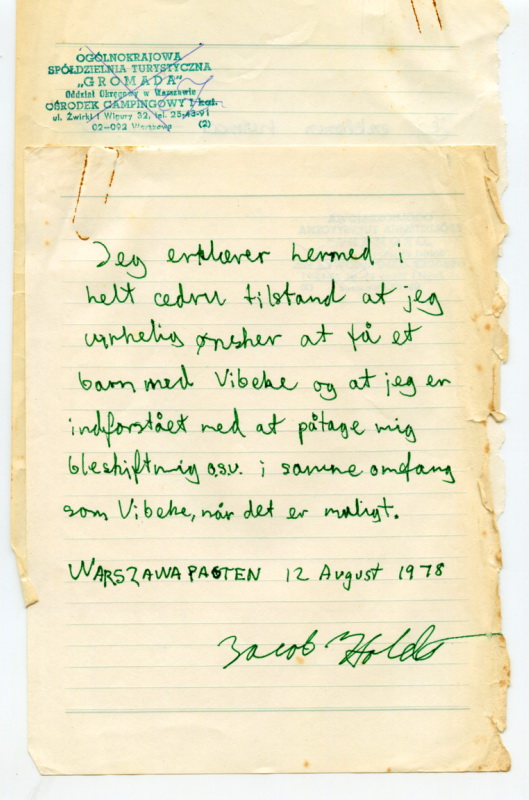 OGÓLNOKRAJOWA
SPÓŁDZIELNIA TURYSTYCZNA
„GROMADA"
Oddział Okręgowy w Warszawie
OŚRODEK CAMPINGOWY I kat.
ul. Żwirki i Wigury 32, tel. 25-43-91
02-092 Warszawa (2)
Jeg erklærer hermed i
helt cedru tilstand at jeg
virkelig ønsker at få et
barn med Vibeke og at jeg er
indforstået med at påtage mig
bleskiftnig o.s.v. i samme omfang
som Vibeke, når det er muligt.
WARSZAWA PAGTEN 12 August 1978
Jacob Holdt